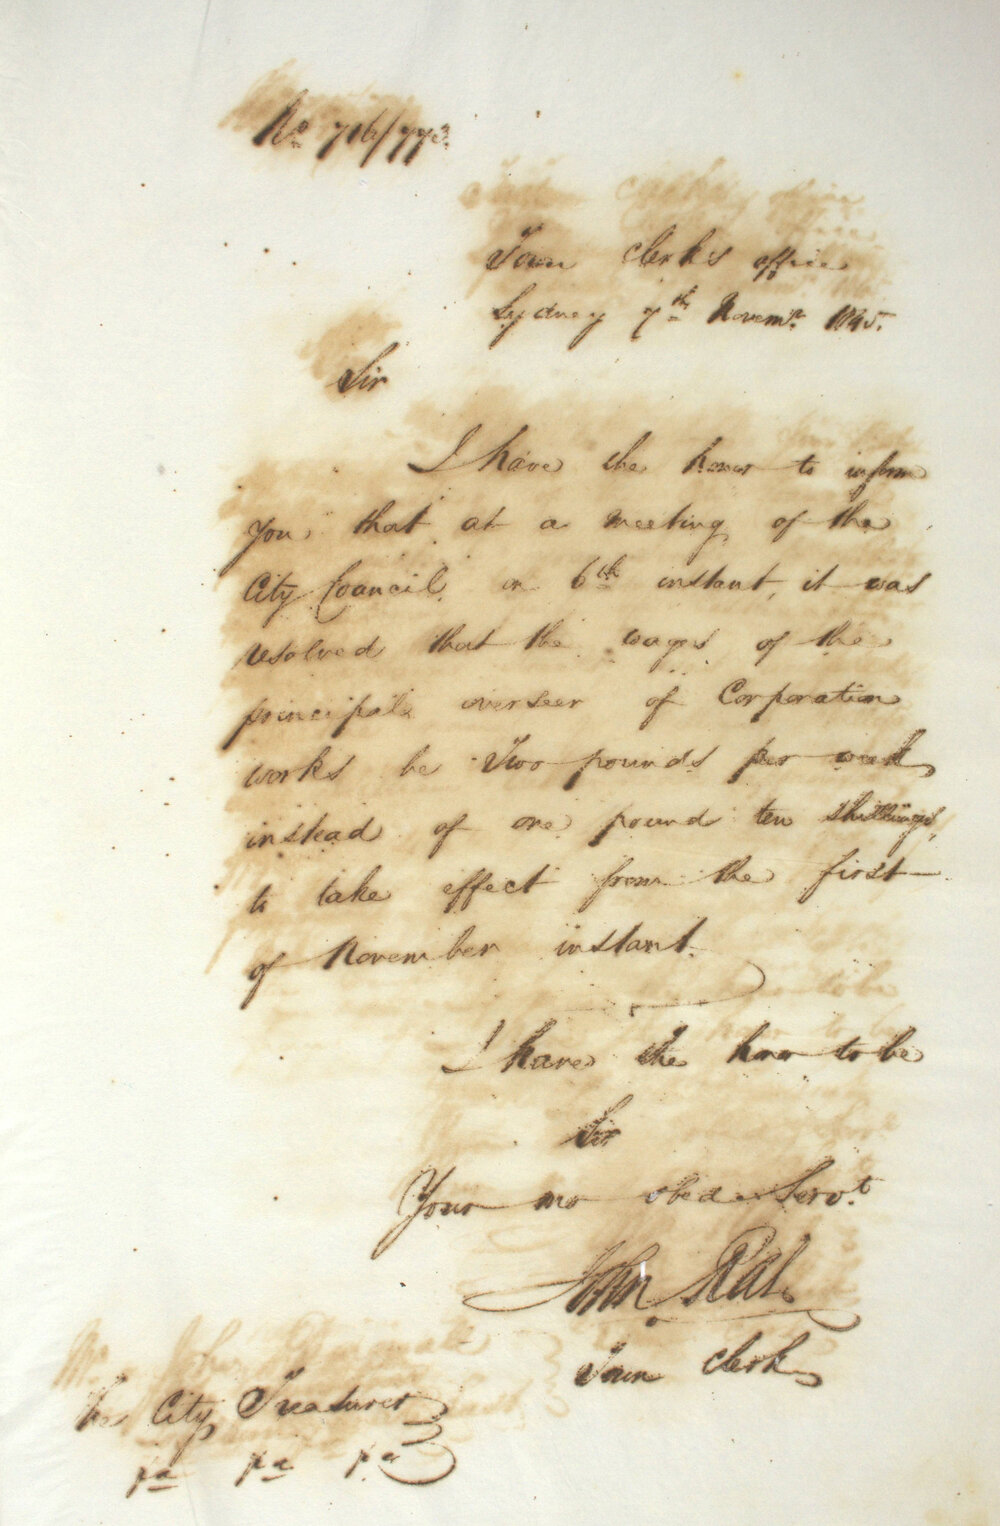 No 716/773.
Town Clerk's office
Sydney 7th Novemr. 1845.
Sir
I have the honor to inform
you that at a meeting of the
City Council on 6th instant, it was
resolved that the wages of the
principal overseer of Corporation
works be Two pounds per week
instead of one pound ten shillings,
to take effect from the first
of November instant.
I have the honor to be
Sir
Your mo obed Servt.
John Rae
Town Clerk
The City Treasurer